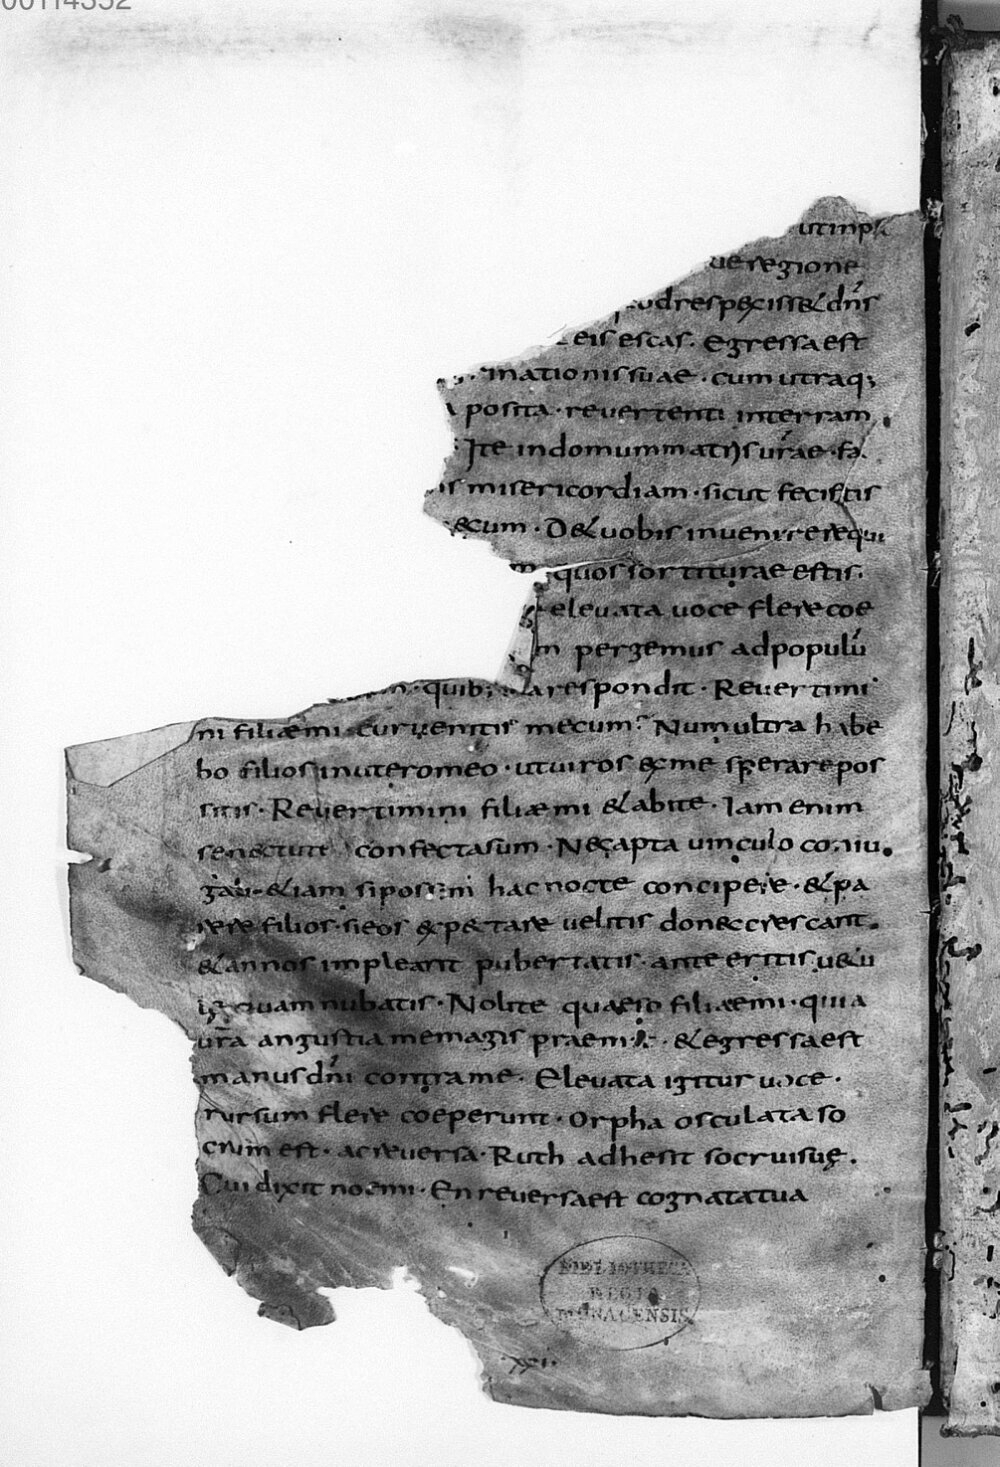 00114352
ut inp
ue regione
quod respexiss& dn̄s
eis escas. Egressa est
inationis suae · cum utraq;
posita · reuertenti in terram
Ite in domum matris ur̄ae · fa
is misericordiam · sicut fecistis
mecum · D& uobis inuenire requi
quos sortiturae estis.
eleuata uoce flere coe
m pergemus ad populū
quib; illa respondit · Reuertimi
ni filiae mi · cur uenitis mecum? Num ultra habe
bo filios in utero meo · ut uiros ex me sperare pos
sitis · Reuertimini filiae mi & abite · Iam enim
senectute confecta sum · Nec apta uinculo coniu
gali · &iam si possem hac nocte concipere · & pa
rere filios · si eos expectare uelitis donec crescant
& annos impleant pubertatis · ante eritis u&u
lę quam nubatis · Nolite quaeso filiae mi · quia
ur̄a angustia me magis praemit · & egressa est
manus dn̄i contra me · Eleuata igitur uoce ·
rursum flere coeperunt · Orpha osculata so
crum est · ac reuersa · Ruth adhesit socrui suę ·
Cui dixit noemi · En reuersa est cognata tua
BIBLIOTHECA
REGIA
MONACENSIS
xxi